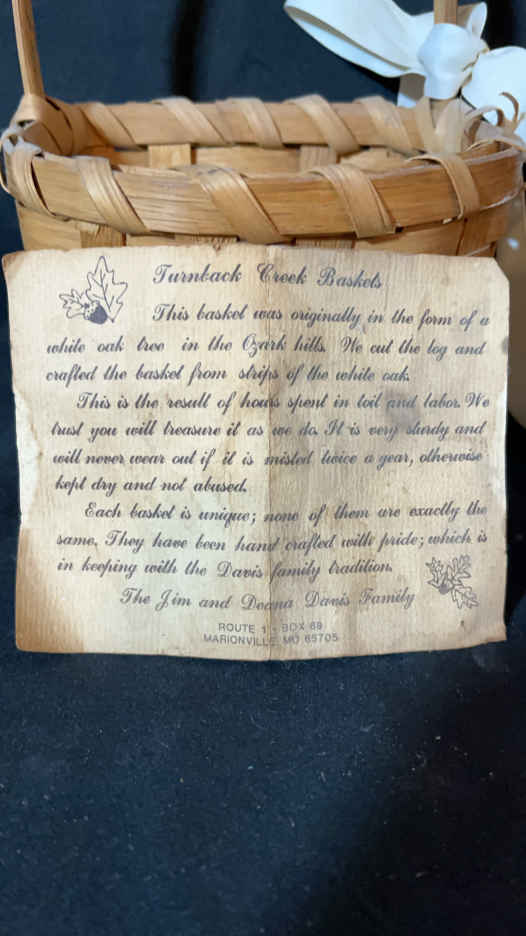 Turnback Creek Baskets
This basket was originally in the form of a
white oak tree in the Ozark hills. We cut the log and
crafted the basket from strips of the white oak.
This is the result of hours spent in toil and labor. We
trust you will treasure it as we do. It is very sturdy and
will never wear out if it is misted twice a year, otherwise
kept dry and not abused.
Each basket is unique; none of them are exactly the
same. They have been hand crafted with pride; which is
in keeping with the Davis family tradition.
The Jim and Deana Davis Family
ROUTE 1 - BOX 69
MARIONVILLE MO 65705